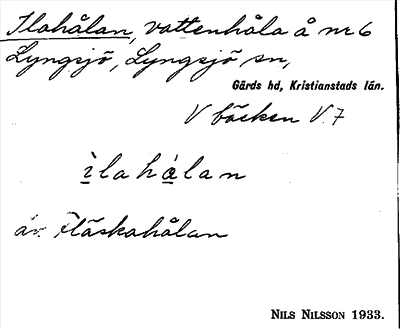 Ilahålan, vattenhåla å nr 6
Lyngsjö, Lyngsjö sn,
Gärds hd, Kristianstads län.
V bäcken V. 7
ìlahålan
äv. Fläskahålan
NILS NILSSON 1933.